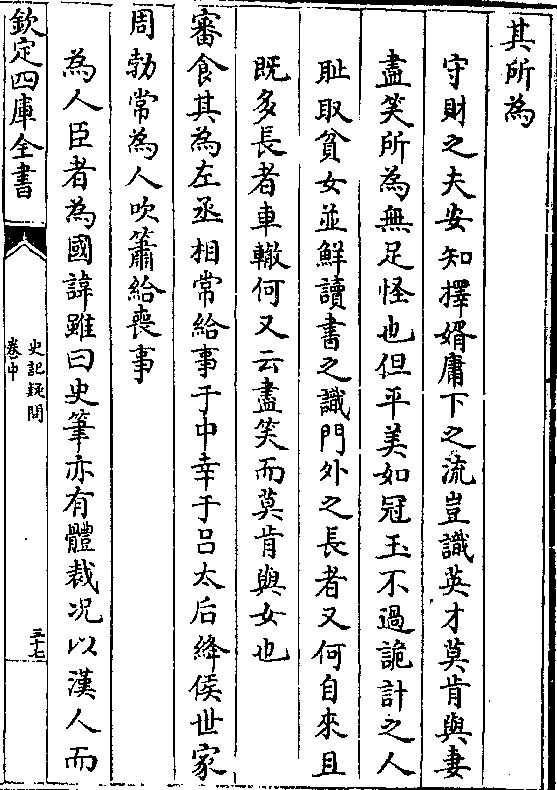 其所為
守財之夫安知擇婿庸下之流豈識英才莫肯與妻
盡笑所為無足怪也但平美如冠玉不過詭計之人
耻取貧女並鮮讀書之識門外之長者又何自來且
既多長者車轍何又云盡笑而莫肯與女也
審食其為左丞相常給事于中幸于呂太后絳侯世家
周勃常為人吹簫給喪事
為人臣者為國諱雖曰史筆亦有體裁况以漢人而
欽定四庫全書
史記疑問
卷中
三十七